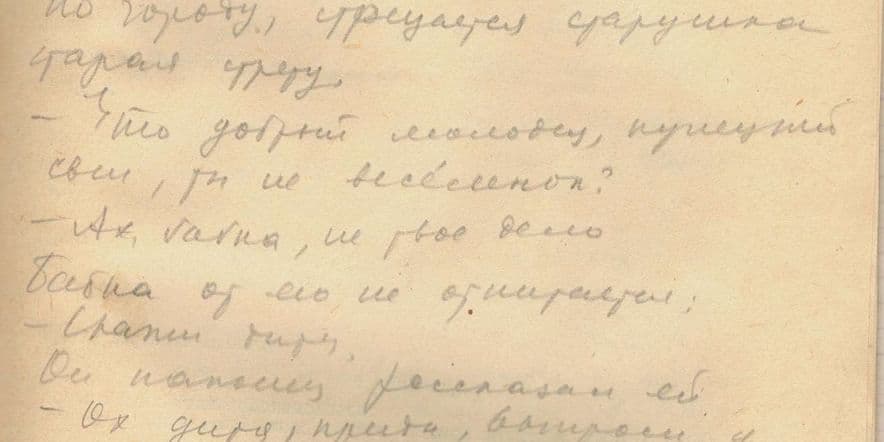 по городу, стречается старушка
старая стрету.
- Что добрый молодец, купецкий
сын, ты не весёленок?
- Ах, бабка, не твое дело
Бабка от его не отпитается:
- Скажи дитя,
Он наконец рассказал ей
- Ох дитя, приди,